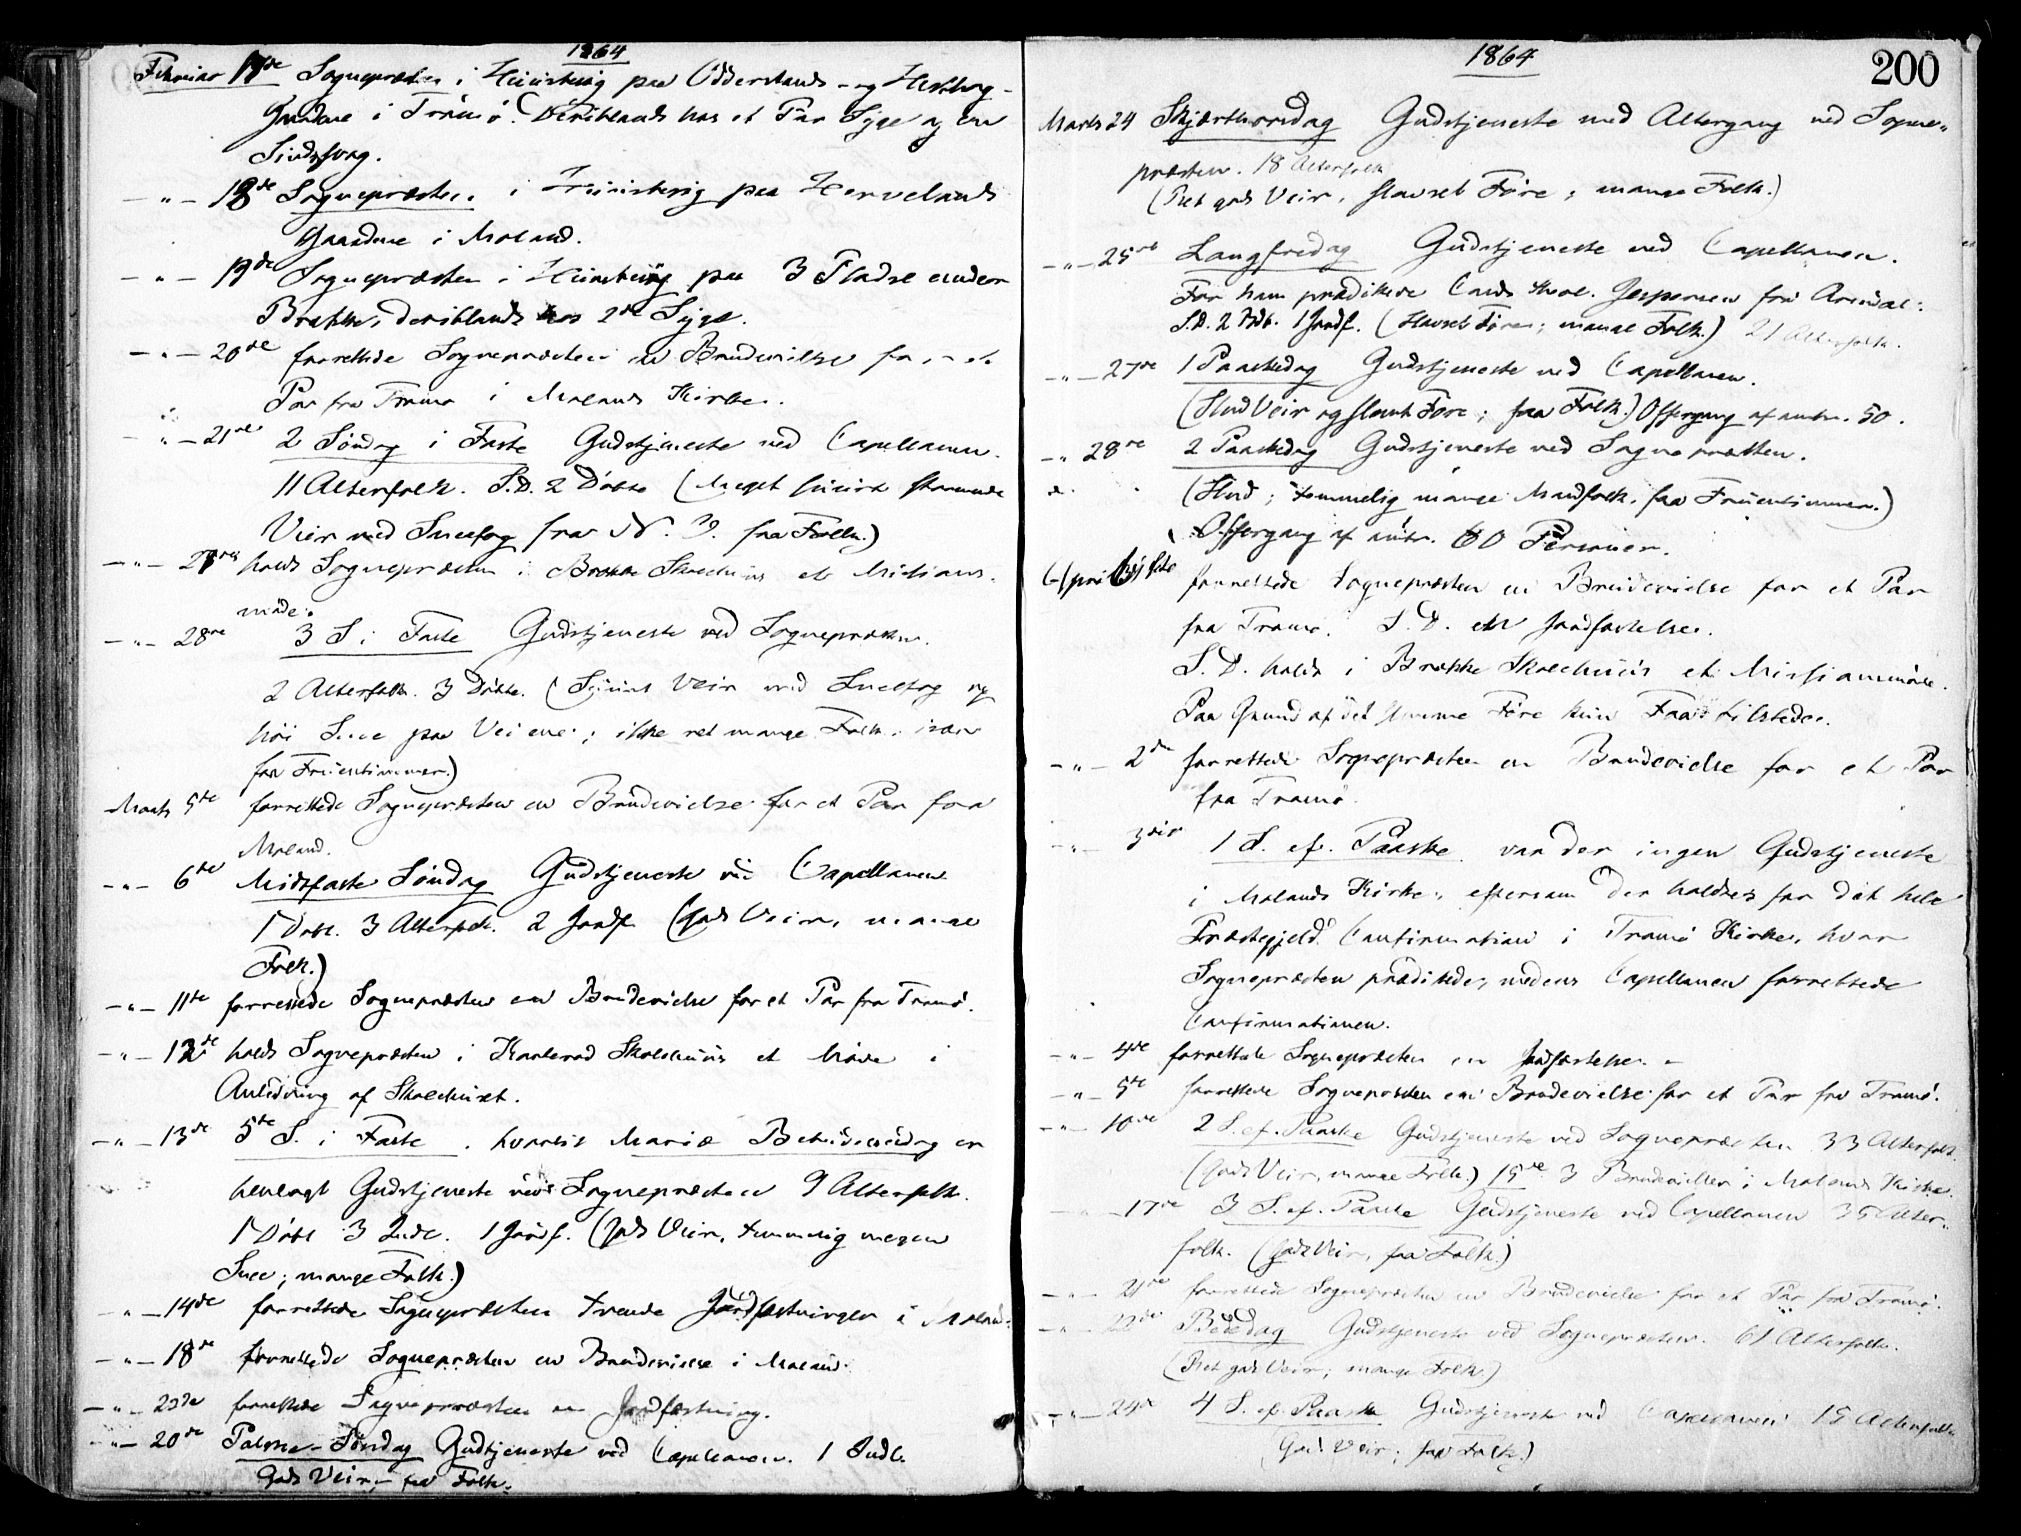 1864
Februar 17de Sognepræsten i Huusbesøg paa Odderslands- og Hesthag-
Gaardene i Tromö. Deriblandt hos et Par Syge og en
Sindssvag.
— " — 18de Sognepræsten i Huusbesøg paa Hervelands
Gaardene i Moland.
— " — 19de Sognepræsten i Huusbesøg paa 3 Pladse under
Brække, deriblandt hos 2de Syge.
— " — 20de forrettede Sognepræsten en Brudevielse for et
Par fra Tromø i Molands Kirke.
— " — 21de 2 Søndag i Faste Gudstjeneste ved Capellanen.
11 Alterfolk. S.D. 2 Döbte (Meget stormende
Veir med Sneefog fra N. O. faa Folk.)
— " — holdt Sognepræsten i Brække Skolehuus et Missions-
møde.
— " — 28de 3 S i Faste Gudstjeneste ved Sognepræsten.
2 Alterfolk. 3 Döbte. (Veir med Sneefog og
höi Snee paa Veiene; ikke ret mange Folk, især
faa Fruentimmer.)
Marts 5te forrettede Sognepræsten en Brudevielse for et Par fra
Moland.
— " — 6te Midfaste Søndag Gudstjeneste ved Capellanen
1 Döbt. 3 Alterfolk. 2 Jordf. (godt Veir, mange
Folk.)
— " — 11te forrettede Sognepræsten en Brudevielse for et Par fra Tromö.
— " — 12te holdt Sognepræsten i Skolehuus et Møde i
Anledning af Skolehuset.
— " — 13de 5te S. i Faste, hvortil Mariæ Bebudelsesdag er
henlagt Gudstjeneste ved Sognepræsten 9 Alterfolk.
1 Döbt 3 Indl. 1 Jordf. (godt Veir, temmelig megen
Snee; mange Folk.)
— " — 14de forrettede Sognepræsten tvende Jordfæstninger i Moland.
— " — 18de forrettede Sognepræsten en Brudevielse i Moland.
— " — forrettede Sognepræsten en Jordfæstning.
— " — 20de Palme-Søndag Gudstjeneste ved Capellanen. 1 Indl.
Godt Veir; faa Folk.
1864
200
Marts 24 Skjærthorsdag Gudstjeneste med Altergang ved Sogne-
præsten. 18 Alterfolk
(Ret godt Veir, slavset Føre; mange Folk.)
— " — 25de Langfredag Gudstjeneste ved Capellanen.
For ham prædikede Cand. theol. Jespersen fra Arendal.
S.D. 2 Döb. 1 Jordf. (slavset Føre; mange Folk.) 21 Alterfolk.
— " — 27de 1 Paaskedag Gudstjeneste ved Capellanen.
(Slud Veir og slemt Føre; faa Folk.) Offergang af omtr. 50.
— " 28de 2 Paaskedag Gudstjeneste ved Sognepræsten.
(Slud; temmelig mange Mandfolk, faa Fruentimmer.)
Offergang af omtr. 60 Personer.
April 1ste forrettede Sognepræsten en Brudevielse for et Par
fra Tromø. S. D. en Jordfæstelse.
S. D. holdt i Brække Skolehuus et Missionsmöde.
Paa Grund af det slemme Føre kun Faa tilstede.
— " — 2de forrettede Sognepræsten en Brudevielse for et Par
fra Tromö.
— " — 3die 1 S. ef. Paaske var der ingen Gudstjeneste
i Molands Kirke, eftersom der holdtes for det hele
Præstegjeld Confirmation i Tromö Kirke, hvor
Sognepræsten prædikede, medens Capellanen forrettede
Confirmationen.
— " — 4de forrettede Sognepræsten en Jordfæstelse.
— " — 5te forrettede Sognepræsten en Brudevielse for et Par fra Tromö.
— " — 10de 2 S. ef. Paaske Gudstjeneste ved Sognepræsten 33 Alterfolk.
(godt Veir, mange Folk.) 15de 3 Brudevielser i Molands Kirke.
— " — 17de 3 S. ef. Paaske Gudstjeneste ved Capellanen 35 Alter-
folk. (godt Veir, faa Folk.)
— " — 21de forrettede Sognepræsten en Brudevielse for et Par fra Tromø.
— " — 22de Bededag Gudstjeneste ved Sognepræsten. 61 Alterfolk.
(Ret godt Veir; mange Folk.)
— " — 24de 4 S. ef. Paaske Gudstjeneste ved Capellanen 15 Alterfolk
(Godt Veir; faa Folk.)